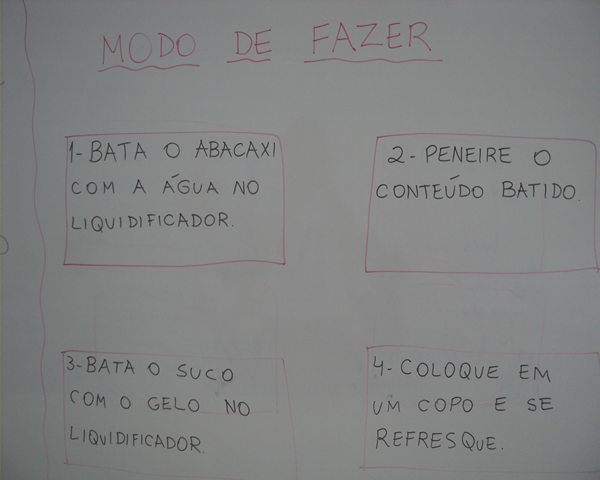 MODO DE FAZER
1- BATA O ABACAXI
COM A ÁGUA NO
LIQUIDIFICADOR.
2- PENEIRE O
CONTEÚDO BATIDO.
3- BATA O SUCO
COM O GELO NO
LIQUIDIFICADOR.
4- COLOQUE EM
UM COPO E SE
REFRESQUE.